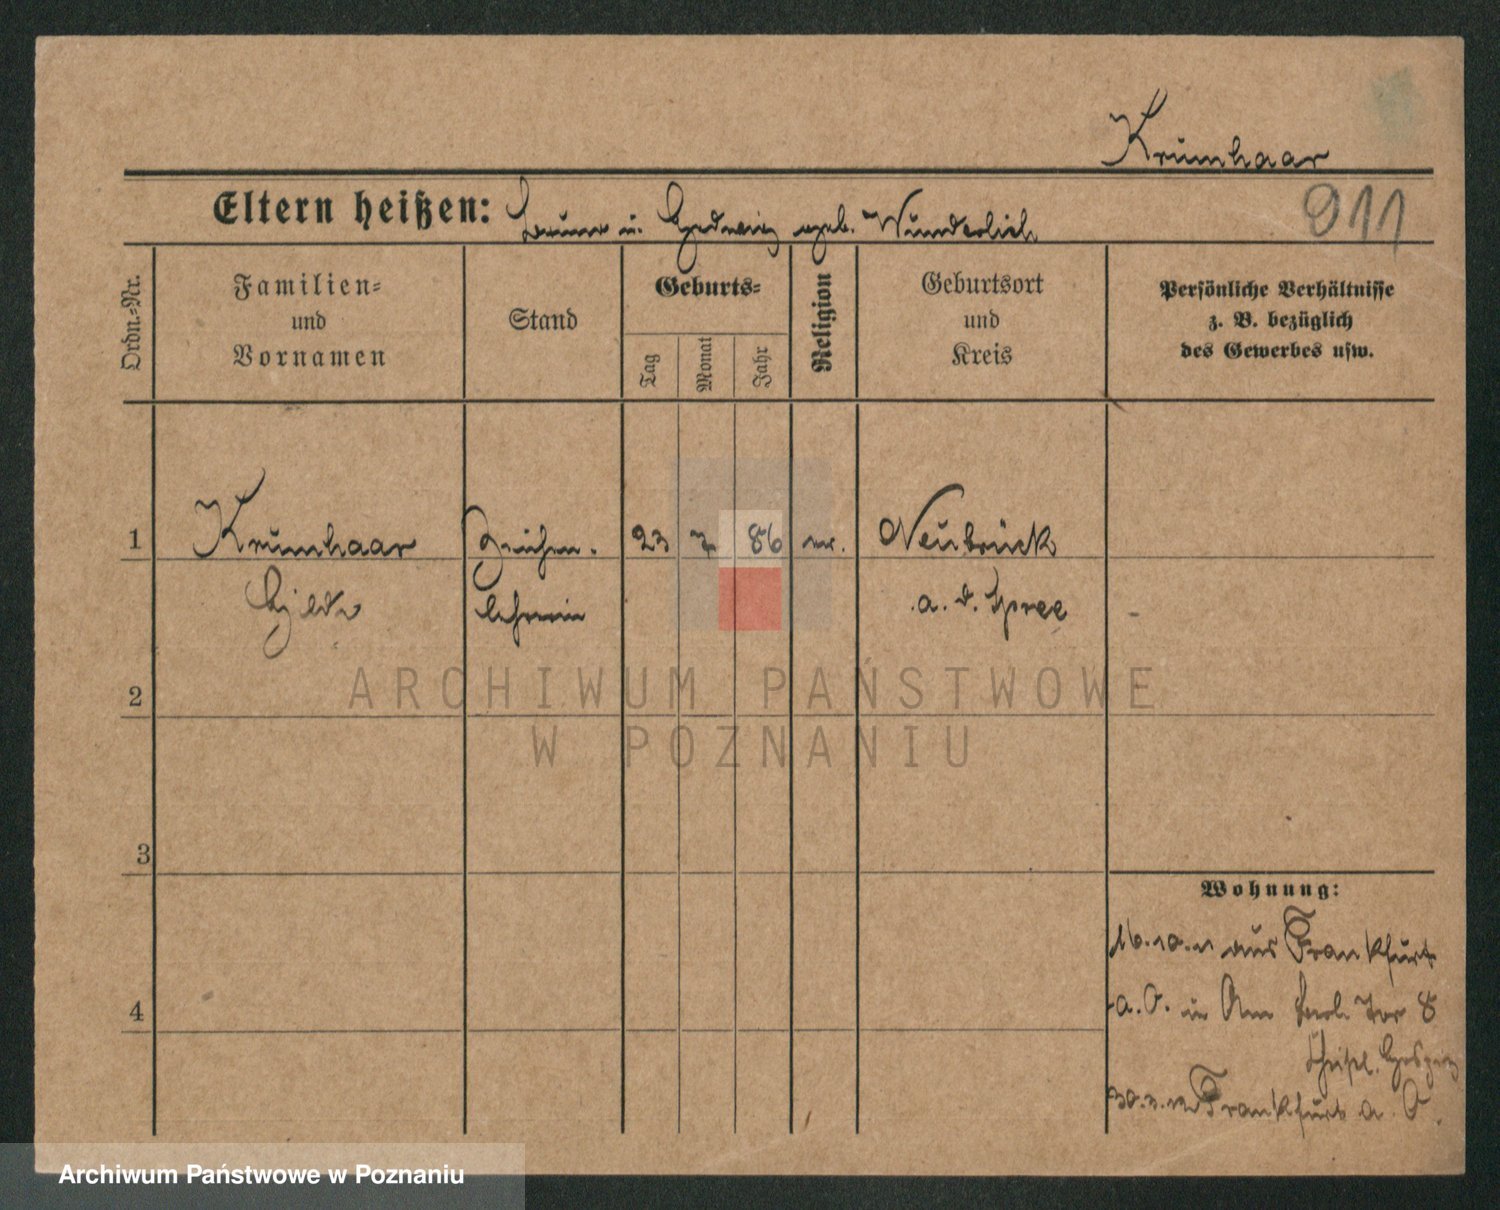 Krumhaar
Eltern heißen: Bruno u. Hedwig geb. Wunderlich
911
Ordn.-Nr.
Familien-
und
Vornamen
Stand
Geburts-
Tag
Monat
Jahr
Religion
Geburtsort
und
Kreis
Persönliche Verhältnisse
z. B. bezüglich
des Gewerbes usw.
1 Krumhaar Zeichen- 23 7 86 ev. Neubrück
lehrerin a. d. Spree
2
ARCHIWUM PAŃSTWOWE
W POZNANIU
3
Wohnung:
16.10.11 aus Frankfurt
4 a. O. in Am Berl. Tor 8
Christl. Hospiz
30.3.12 Frankfurt a. O.
Archiwum Państwowe w Poznaniu